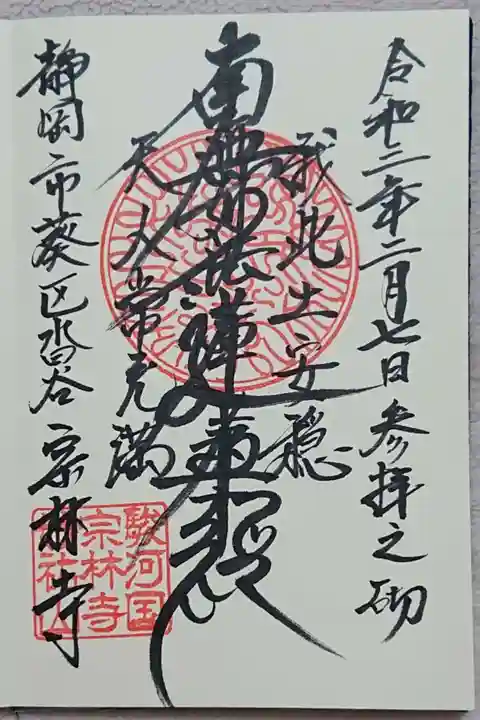 令和二年二月七日参拝之砌
我此土安穏
南無妙法蓮華経
天人常充満
静岡市葵区沓谷 宗林寺
駿河国
宗林寺